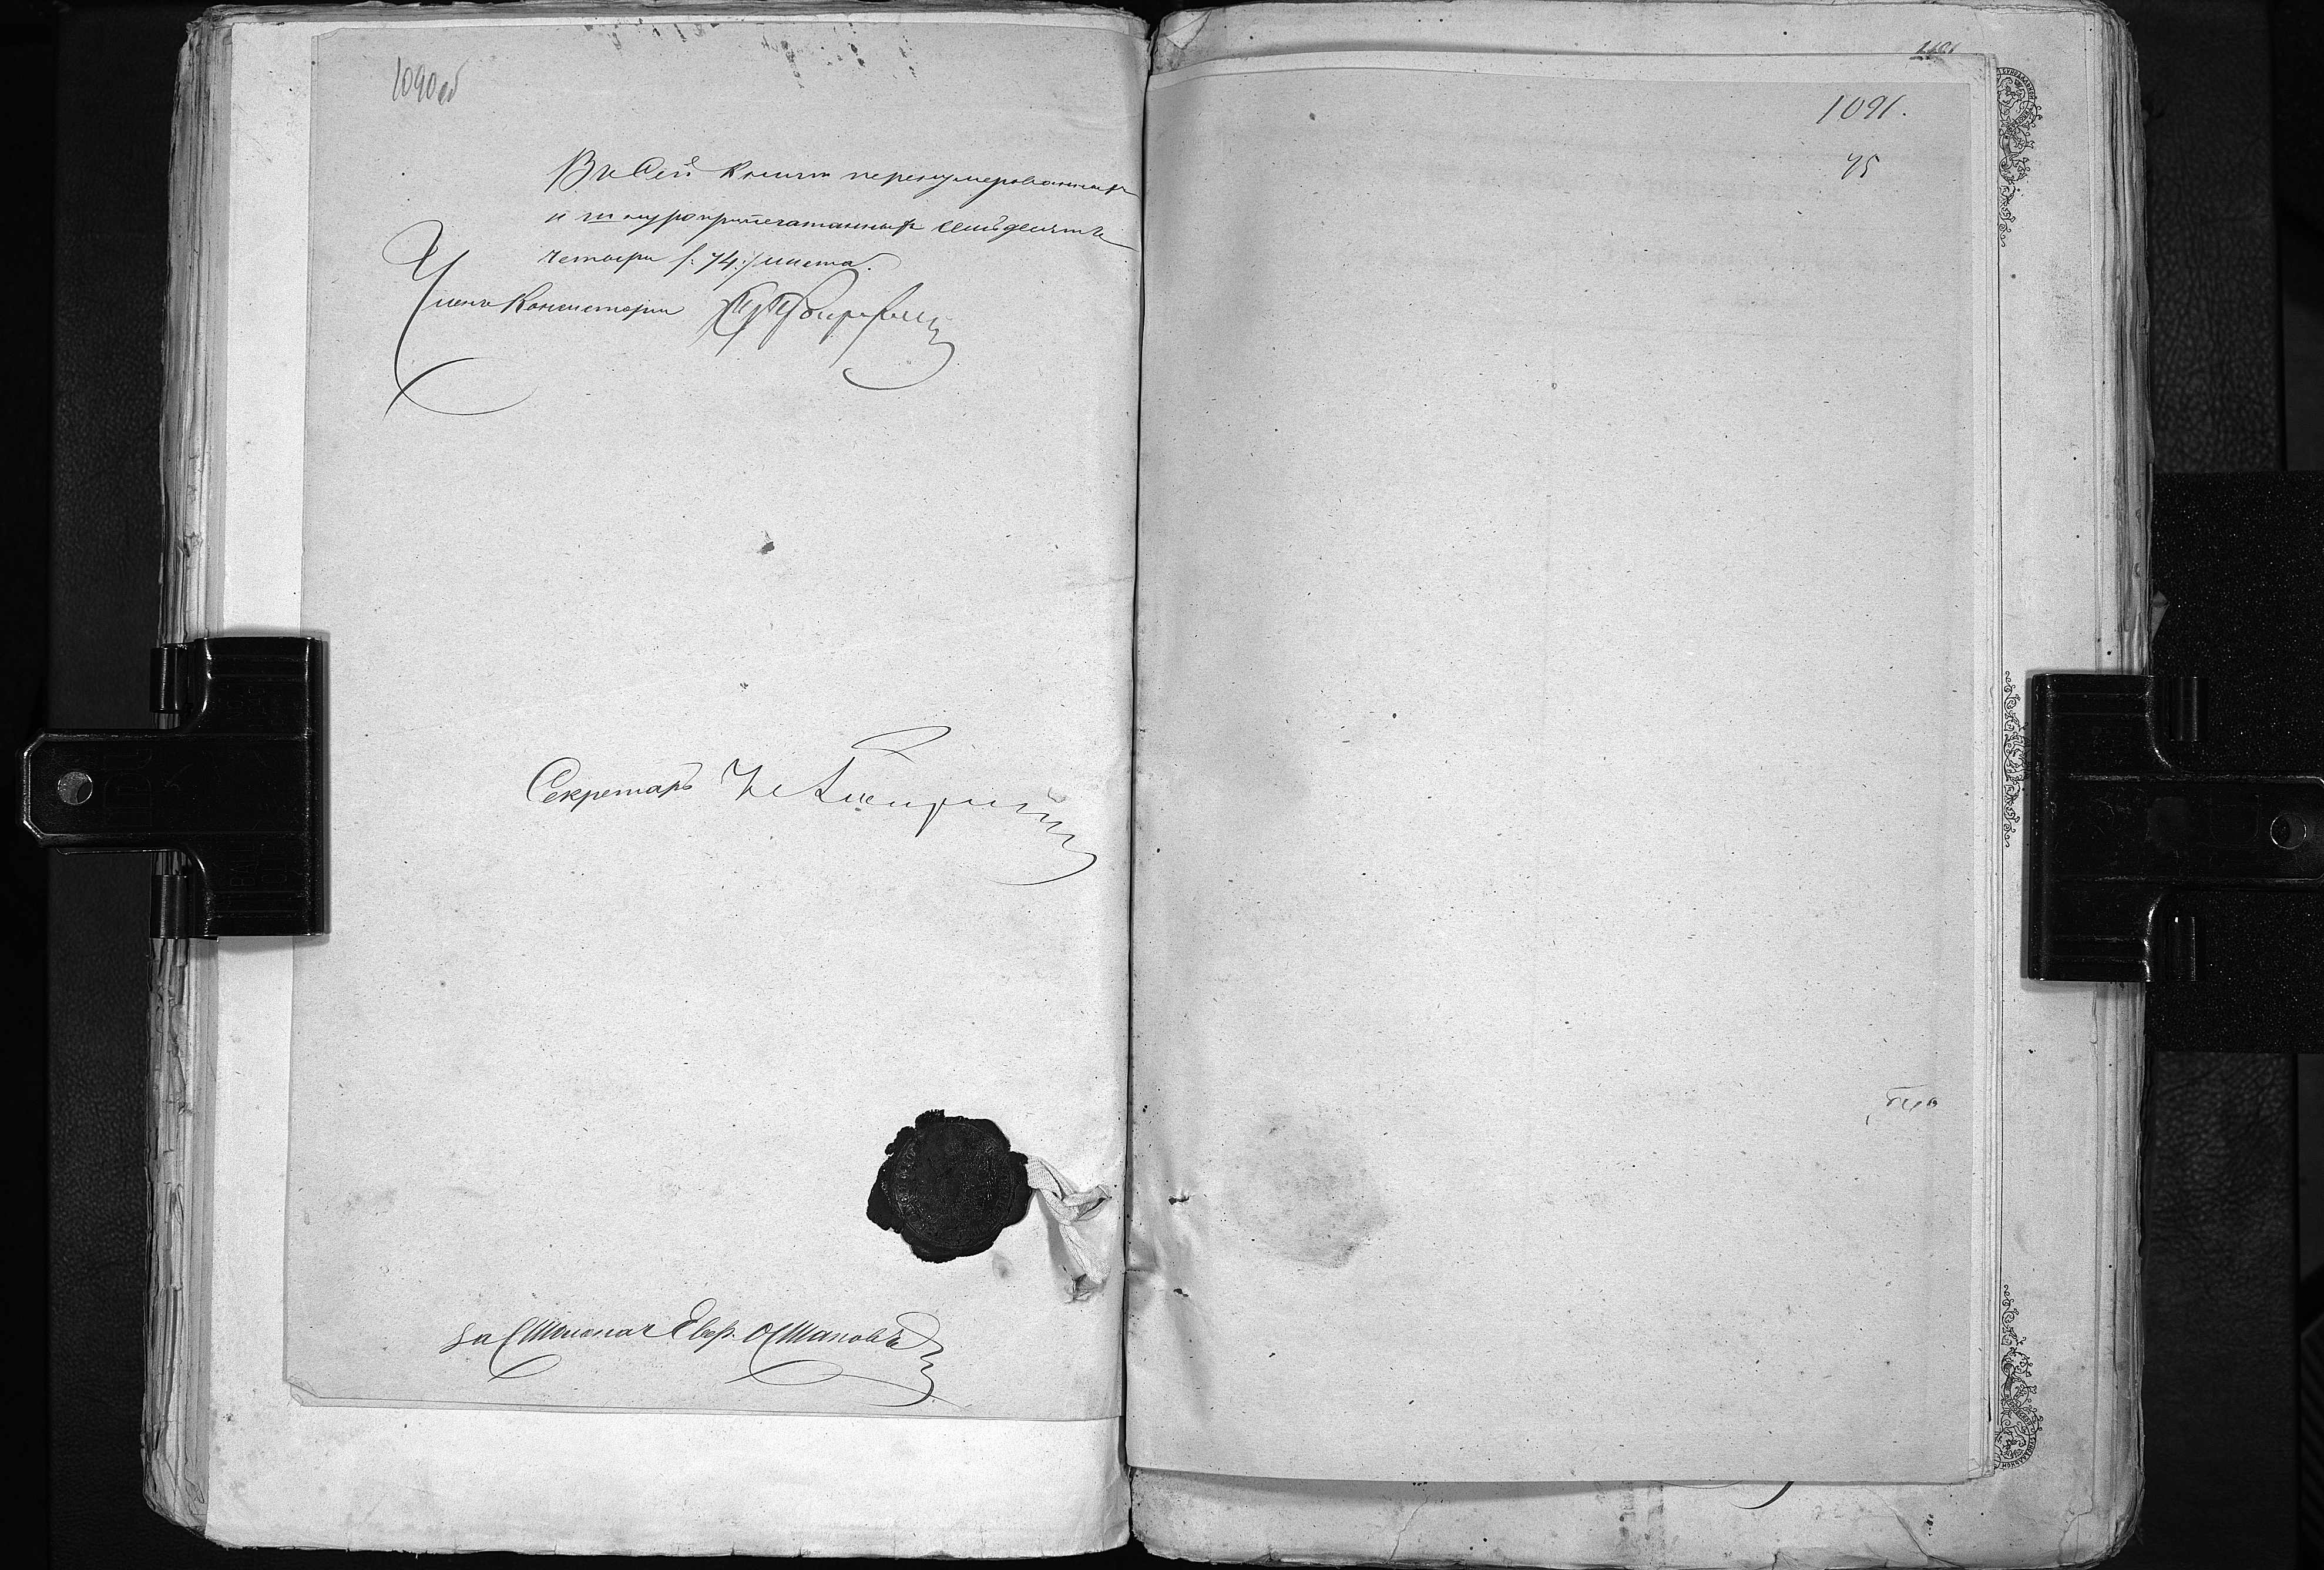 1090об
Въ сей книгѣ перенумерованныхъ
и шнуроприпечатанныхъ семьдесятъ
четыре /: 74 :/ листа.
Членъ Консисторіи
Секретарь
За Столонач.
1091.
75